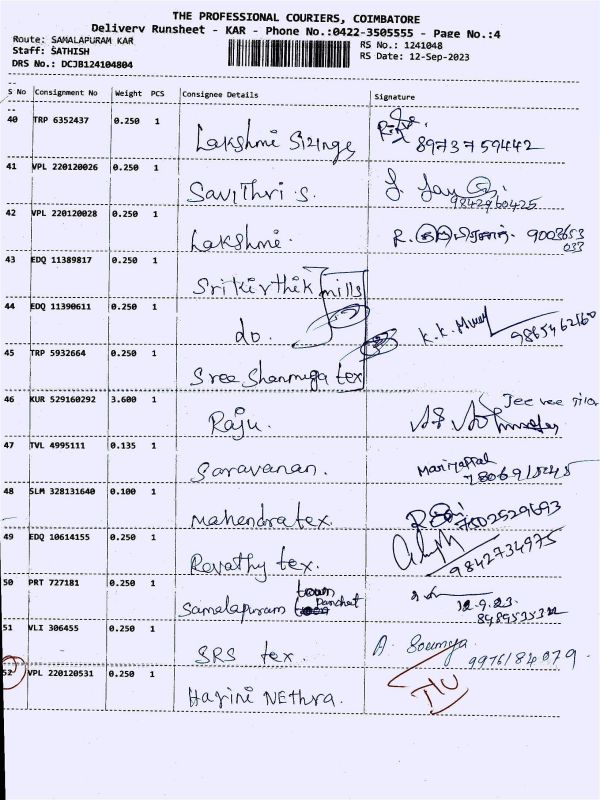 THE PROFESSIONAL COURIERS, COIMBATORE
Delivery Runsheet - KAR - Phone No.:0422-3505555 - Page No.:4
Route: SAMALAPURAM KAR
RS No.: 1241048
Staff: SATHISH
RS Date: 12-Sep-2023
DRS No.: DCJB124104804
S No Consignment No Weight PCS Consignee Details Signature
40 TRP 6352437 0.250 1 Lakshmi Sizings 8973759442
41 VPL 220120026 0.250 1 Savithri S. 9842960425
42 VPL 220120028 0.250 1 Lakshmi. R. 9003653
033
43 EDQ 11389817 0.250 1 Srikirthik mills
44 EDQ 11390611 0.250 1 do. K.K. 9865462160
45 TRP 5932664 0.250 1 Sree Shanmuga tex
46 KUR 529160292 3.600 1 Raju. Jee vee
47 TVL 4995111 0.135 1 Saravanan. Mariyappal
48 SLM 328131640 0.100 1 Mahendra tex. 7502529693
49 EDQ 10614155 0.250 1 Revathy tex. 9842734975
50 PRT 727181 0.250 1 Samalapuram town Panchat 12.9.23
51 VLI 306455 0.250 1 SRS tex. A. Soumya
9976184079.
52 VPL 220120531 0.250 1 Harini NEthra.